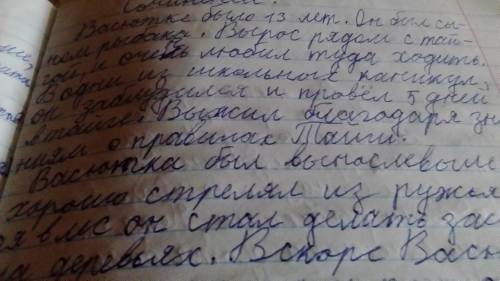 Сочинение.
Васютке было 13 лет. Он был сы-
ном рыбака. Вырос рядом с тай-
гой, и очень любил туда ходить.
В одни из школьных каникул,
он заблудился и провёл 5 дней
в тайге. Выжил благодаря зна
ниям о правилах Тайги.
Васютка был выносливым
хорошо стрелял из ружья
в лес он стал делать за
на деревьях. Вскоре Вась